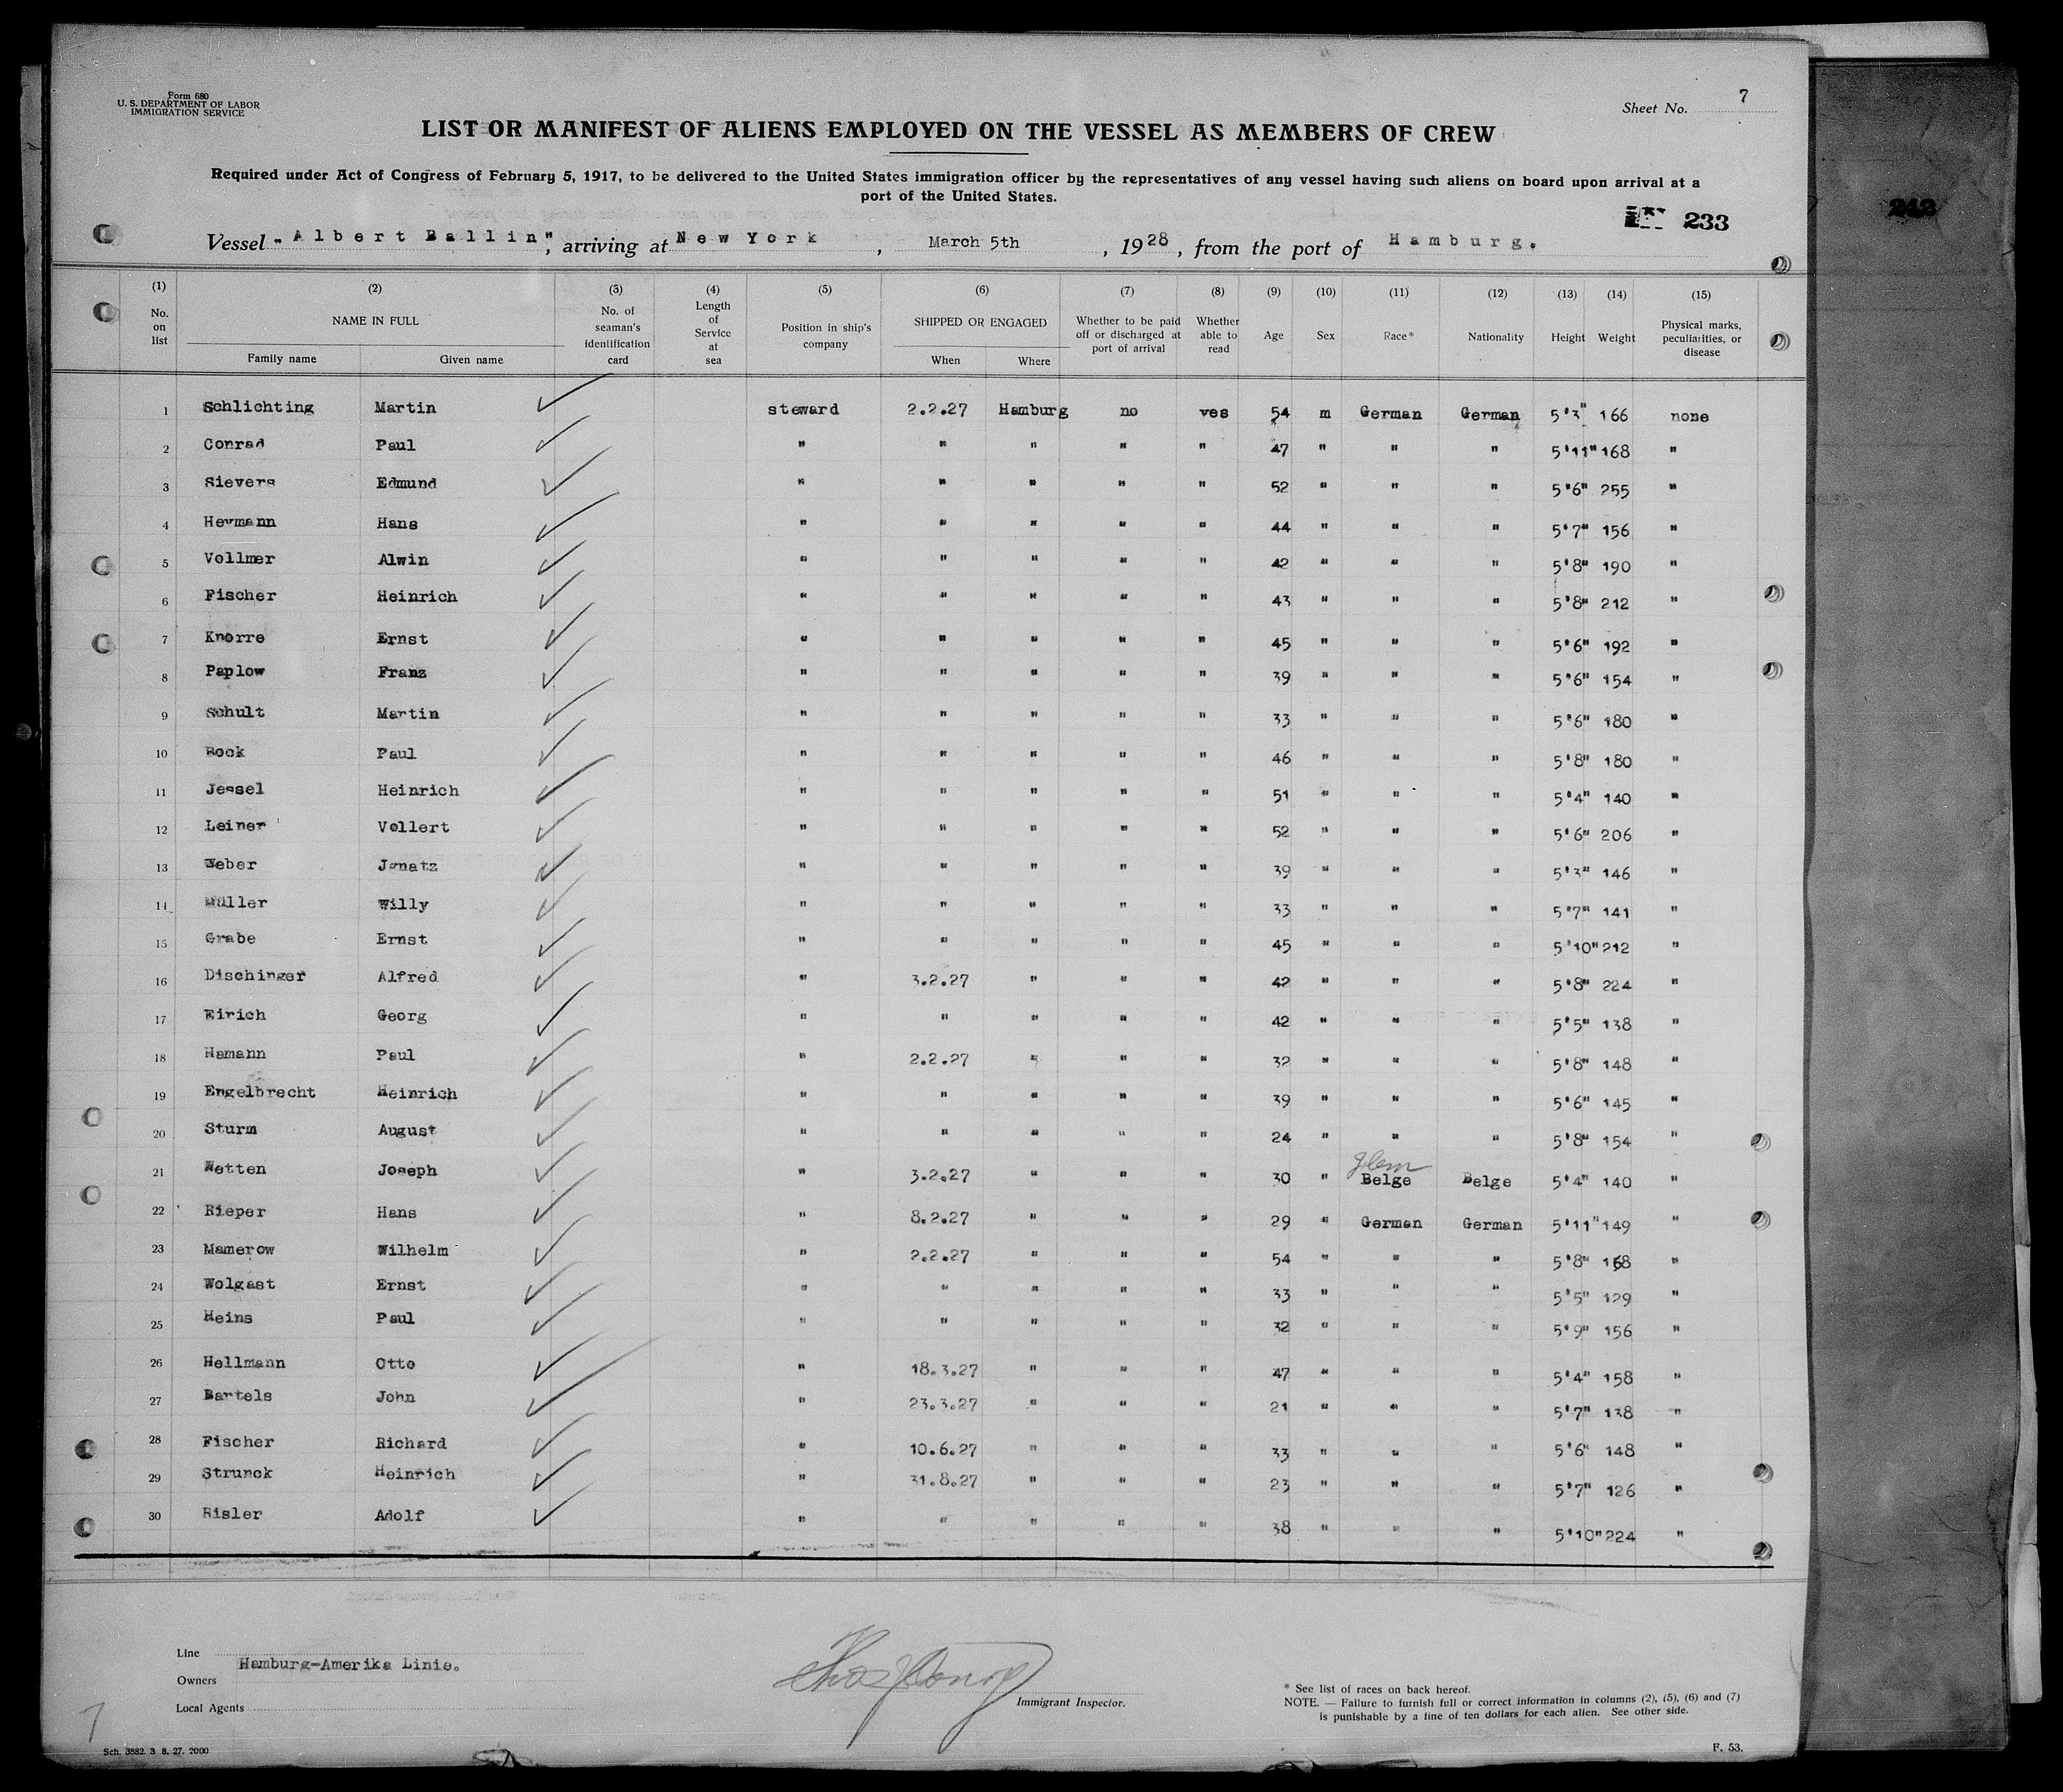 Form 680
U. S. DEPARTMENT OF LABOR
IMMIGRATION SERVICE
Sheet No. 7
LIST OR MANIFEST OF ALIENS EMPLOYED ON THE VESSEL AS MEMBERS OF CREW
Required under Act of Congress of February 5, 1917, to be delivered to the United States immigration officer by the representatives of any vessel having such aliens on board upon arrival at a
port of the United States.
233
243
Vessel "Albert Ballin", arriving at New York, March 5th, 1928, from the port of Hamburg.
(1) No. on list (2) NAME IN FULL Family name Given name (3) No. of seaman's identification card (4) Length of Service at sea (5) Position in ship's company (6) SHIPPED OR ENGAGED When Where (7) Whether to be paid off or discharged at port of arrival (8) Whether able to read (9) Age (10) Sex (11) Race* (12) Nationality (13) Height (14) Weight (15) Physical marks, peculiarities, or disease
1 Schlichting Martin ✓ steward 2.2.27 Hamburg no yes 54 m German German 5'3" 166 none
2 Conrad Paul ✓ " " " " " 47 " " " 5'11" 168 "
3 Sievers Edmund ✓ " " " " " 52 " " " 5'6" 255 "
4 Heymann Hans ✓ " " " " " 44 " " " 5'7" 156 "
5 Vollmer Alwin ✓ " " " " " 42 " " " 5'8" 190 "
6 Fischer Heinrich ✓ " " " " " 43 " " " 5'8" 212 "
7 Knorre Ernst ✓ " " " " " 45 " " " 5'6" 192 "
8 Paplow Franz ✓ " " " " " 39 " " " 5'6" 154 "
9 Schult Martin ✓ " " " " " 33 " " " 5'6" 180 "
10 Bock Paul ✓ " " " " " 46 " " " 5'8" 180 "
11 Jessel Heinrich ✓ " " " " " 51 " " " 5'4" 140 "
12 Leiner Vollert ✓ " " " " " 52 " " " 5'6" 206 "
13 Weber Jgnatz ✓ " " " " " 39 " " " 5'3" 146 "
14 Müller Willy ✓ " " " " " 33 " " " 5'7" 141 "
15 Grabe Ernst ✓ " " " " " 45 " " " 5'10" 212 "
16 Dischinger Alfred ✓ " 3.2.27 " " " 42 " " " 5'8" 224 "
17 Eirich Georg ✓ " " " " " 42 " " " 5'5" 138 "
18 Hamann Paul ✓ " 2.2.27 " " " 32 " " " 5'8" 148 "
19 Engelbrecht Heinrich ✓ " " " " " 39 " " " 5'6" 145 "
20 Sturm August ✓ " " " " " 24 " " " 5'8" 154 "
21 Netten Joseph ✓ " 3.2.27 " " " 30 " Flem Belge Belge 5'4" 140 "
22 Rieper Hans ✓ " 8.2.27 " " " 29 " German German 5'11" 149 "
23 Mamerow Wilhelm ✓ " 2.2.27 " " " 54 " " " 5'8" 168 "
24 Wolgast Ernst ✓ " " " " " 33 " " " 5'5" 129 "
25 Heins Paul ✓ " " " " " 32 " " " 5'9" 156 "
26 Hellmann Otto ✓ " 18.3.27 " " " 47 " " " 5'4" 158 "
27 Bartels John ✓ " 23.3.27 " " " 21 " " " 5'7" 138 "
28 Fischer Richard ✓ " 10.6.27 " " " 33 " " " 5'6" 148 "
29 Strunck Heinrich ✓ " 31.8.27 " " " 23 " " " 5'7" 126 "
30 Risler Adolf ✓ " " " " " 38 " " " 5'10" 224 "
Line
Owners Hamburg-Amerika Linie.
Local Agents
Immigrant Inspector.
* See list of races on back hereof.
NOTE. — Failure to furnish full or correct information in columns (2), (5), (6) and (7)
is punishable by a fine of ten dollars for each alien. See other side.
7
Sch. 3882. 3 8. 27. 2000
F. 53.